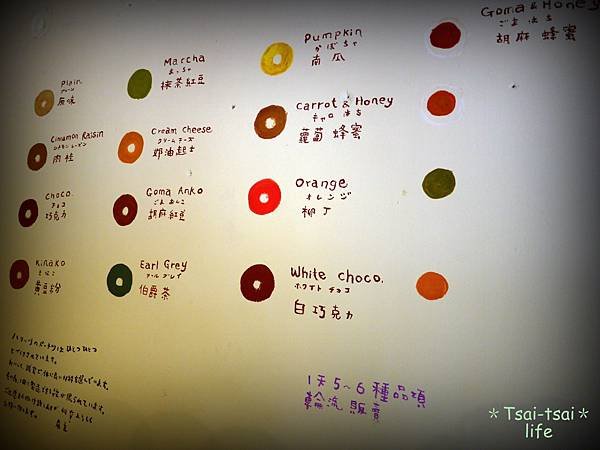 Plain
プレーン
原味
Cinnamon Raisin
シナモンレーズン
肉桂
choco.
チョコ
巧克力
Kinako
きなこ
黃豆粉
Marcha
まっちゃ
抹茶紅豆
Cream cheese
クリームチーズ
奶油起士
Goma Anko
ごまあんこ
胡麻紅豆
Earl Grey
アールグレイ
伯爵茶
Pumpkin
かぼちゃ
南瓜
carrot & Honey
キャロ はち
蘿蔔 蜂蜜
Orange
オレンジ
柳丁
White choco.
ホワイト チョコ
白巧克力
Goma & Honey
ごま はち
胡麻 蜂蜜
1天5~6種品項
輪流 販賣
*Tsai-tsai*
life